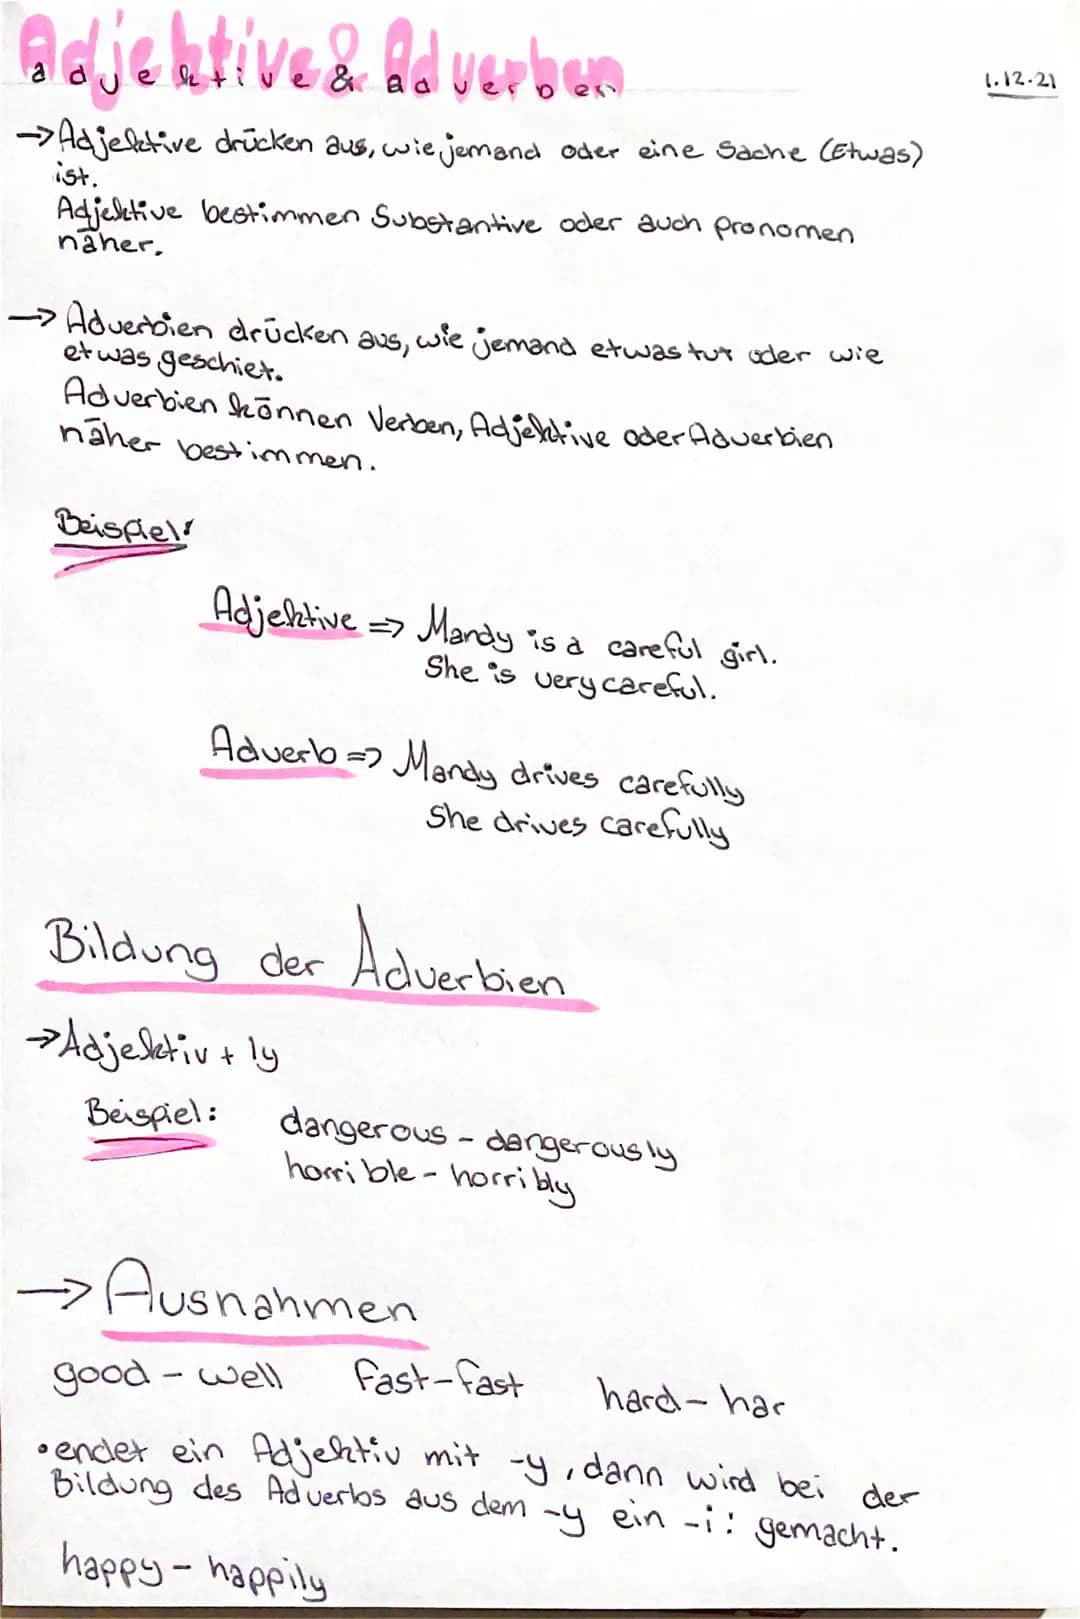 Adjektive & Adverben
adjektive & adverben
1.12.21
→ Adjektive drücken aus, wie jemand oder eine Sache (Etwas)
ist.
Adjektive bestimmen Substantive oder auch pronomen
näher.
→ Adverbien drücken aus, wie jemand etwas tut oder wie
etwas geschiet.
Adverbien können Verben, Adjektive oder Adverbien
näher bestimmen.
Beispiel:
Adjektive => Mandy is a careful girl.
She is very careful.
Adverb => Mandy drives carefully
She drives carefully
Bildung der Adverbien
→ Adjektiv + ly
Beispiel: dangerous - dangerously
horrible - horribly
→ Ausnahmen
good - well fast-fast hard- har
• endet ein Adjektiv mit -y, dann wird bei der
Bildung des Adverbs aus dem -y ein -i: gemacht.
happy - happily